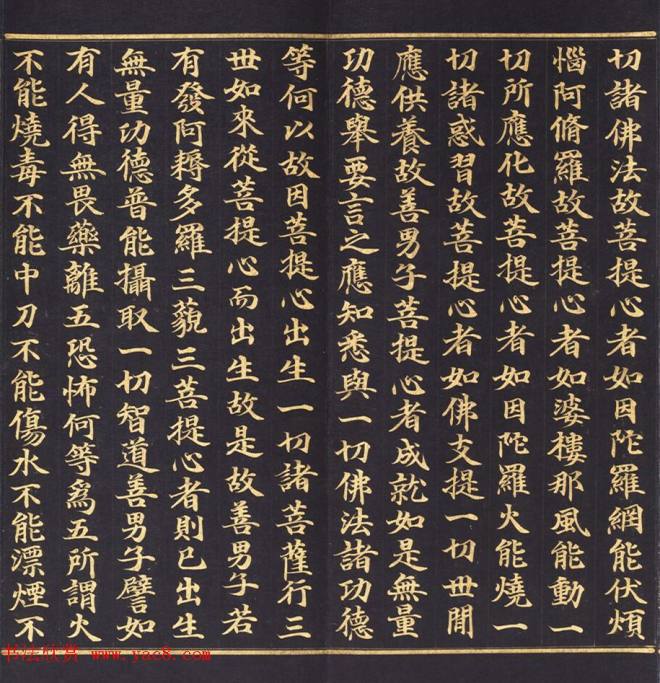 切諸佛法故菩提心者如因陀羅網能伏煩
惱阿脩羅故菩提心者如婆樓那風能動一
切所應化故菩提心者如因陀羅火能燒一
切諸惑習故菩提心者如佛支提一切世間
應供養故善男子菩提心者成就如是無量
功德舉要言之應知悉與一切佛法諸功德
等何以故因菩提心出生一切諸菩薩行三
世如來從菩提心而出生故是故善男子若
有發阿耨多羅三藐三菩提心者則已出生
無量功德普能攝取一切智道善男子譬如
有人得無畏藥離五恐怖何等為五所謂火
不能燒毒不能中刀不能傷水不能漂煙不
书法欣赏 www.yac8.com